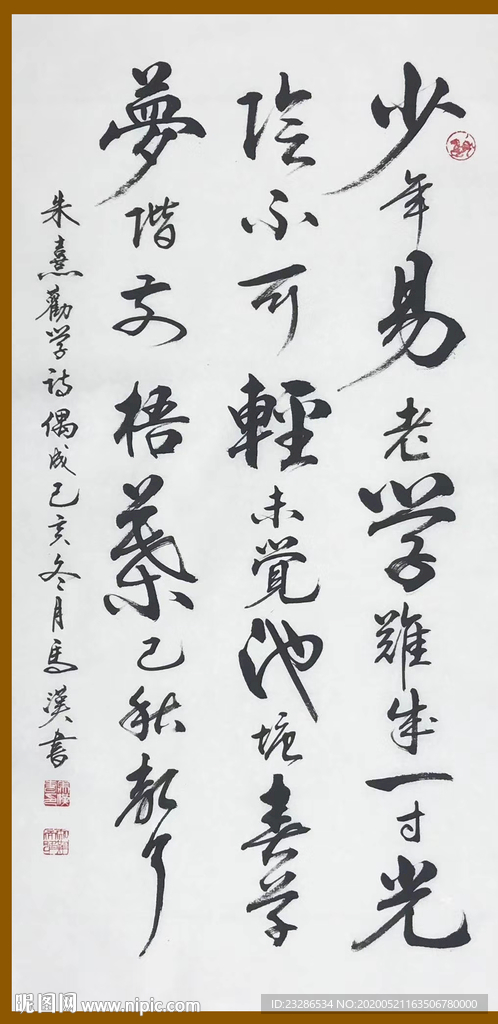 少年易老学難成一寸光
陰不可輕未覺池塘春草
夢階前梧葉已秋聲
朱熹勸学詩偶成己亥冬月馬漢書
昵图网 www.nipic.com
ID:23286534 NO:20200521163506780000